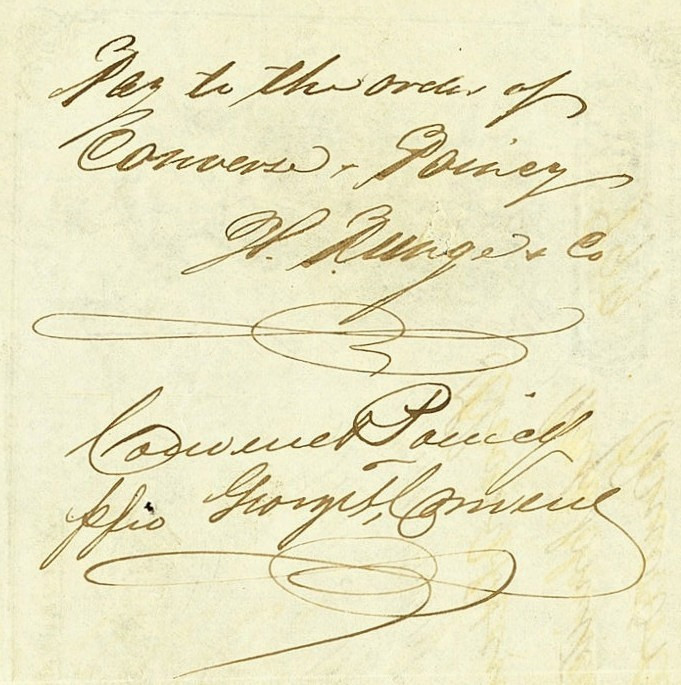 Pay to the order of
Converse & Pomey
H. Runge & Co
Converse & Pomey
George T, Converse